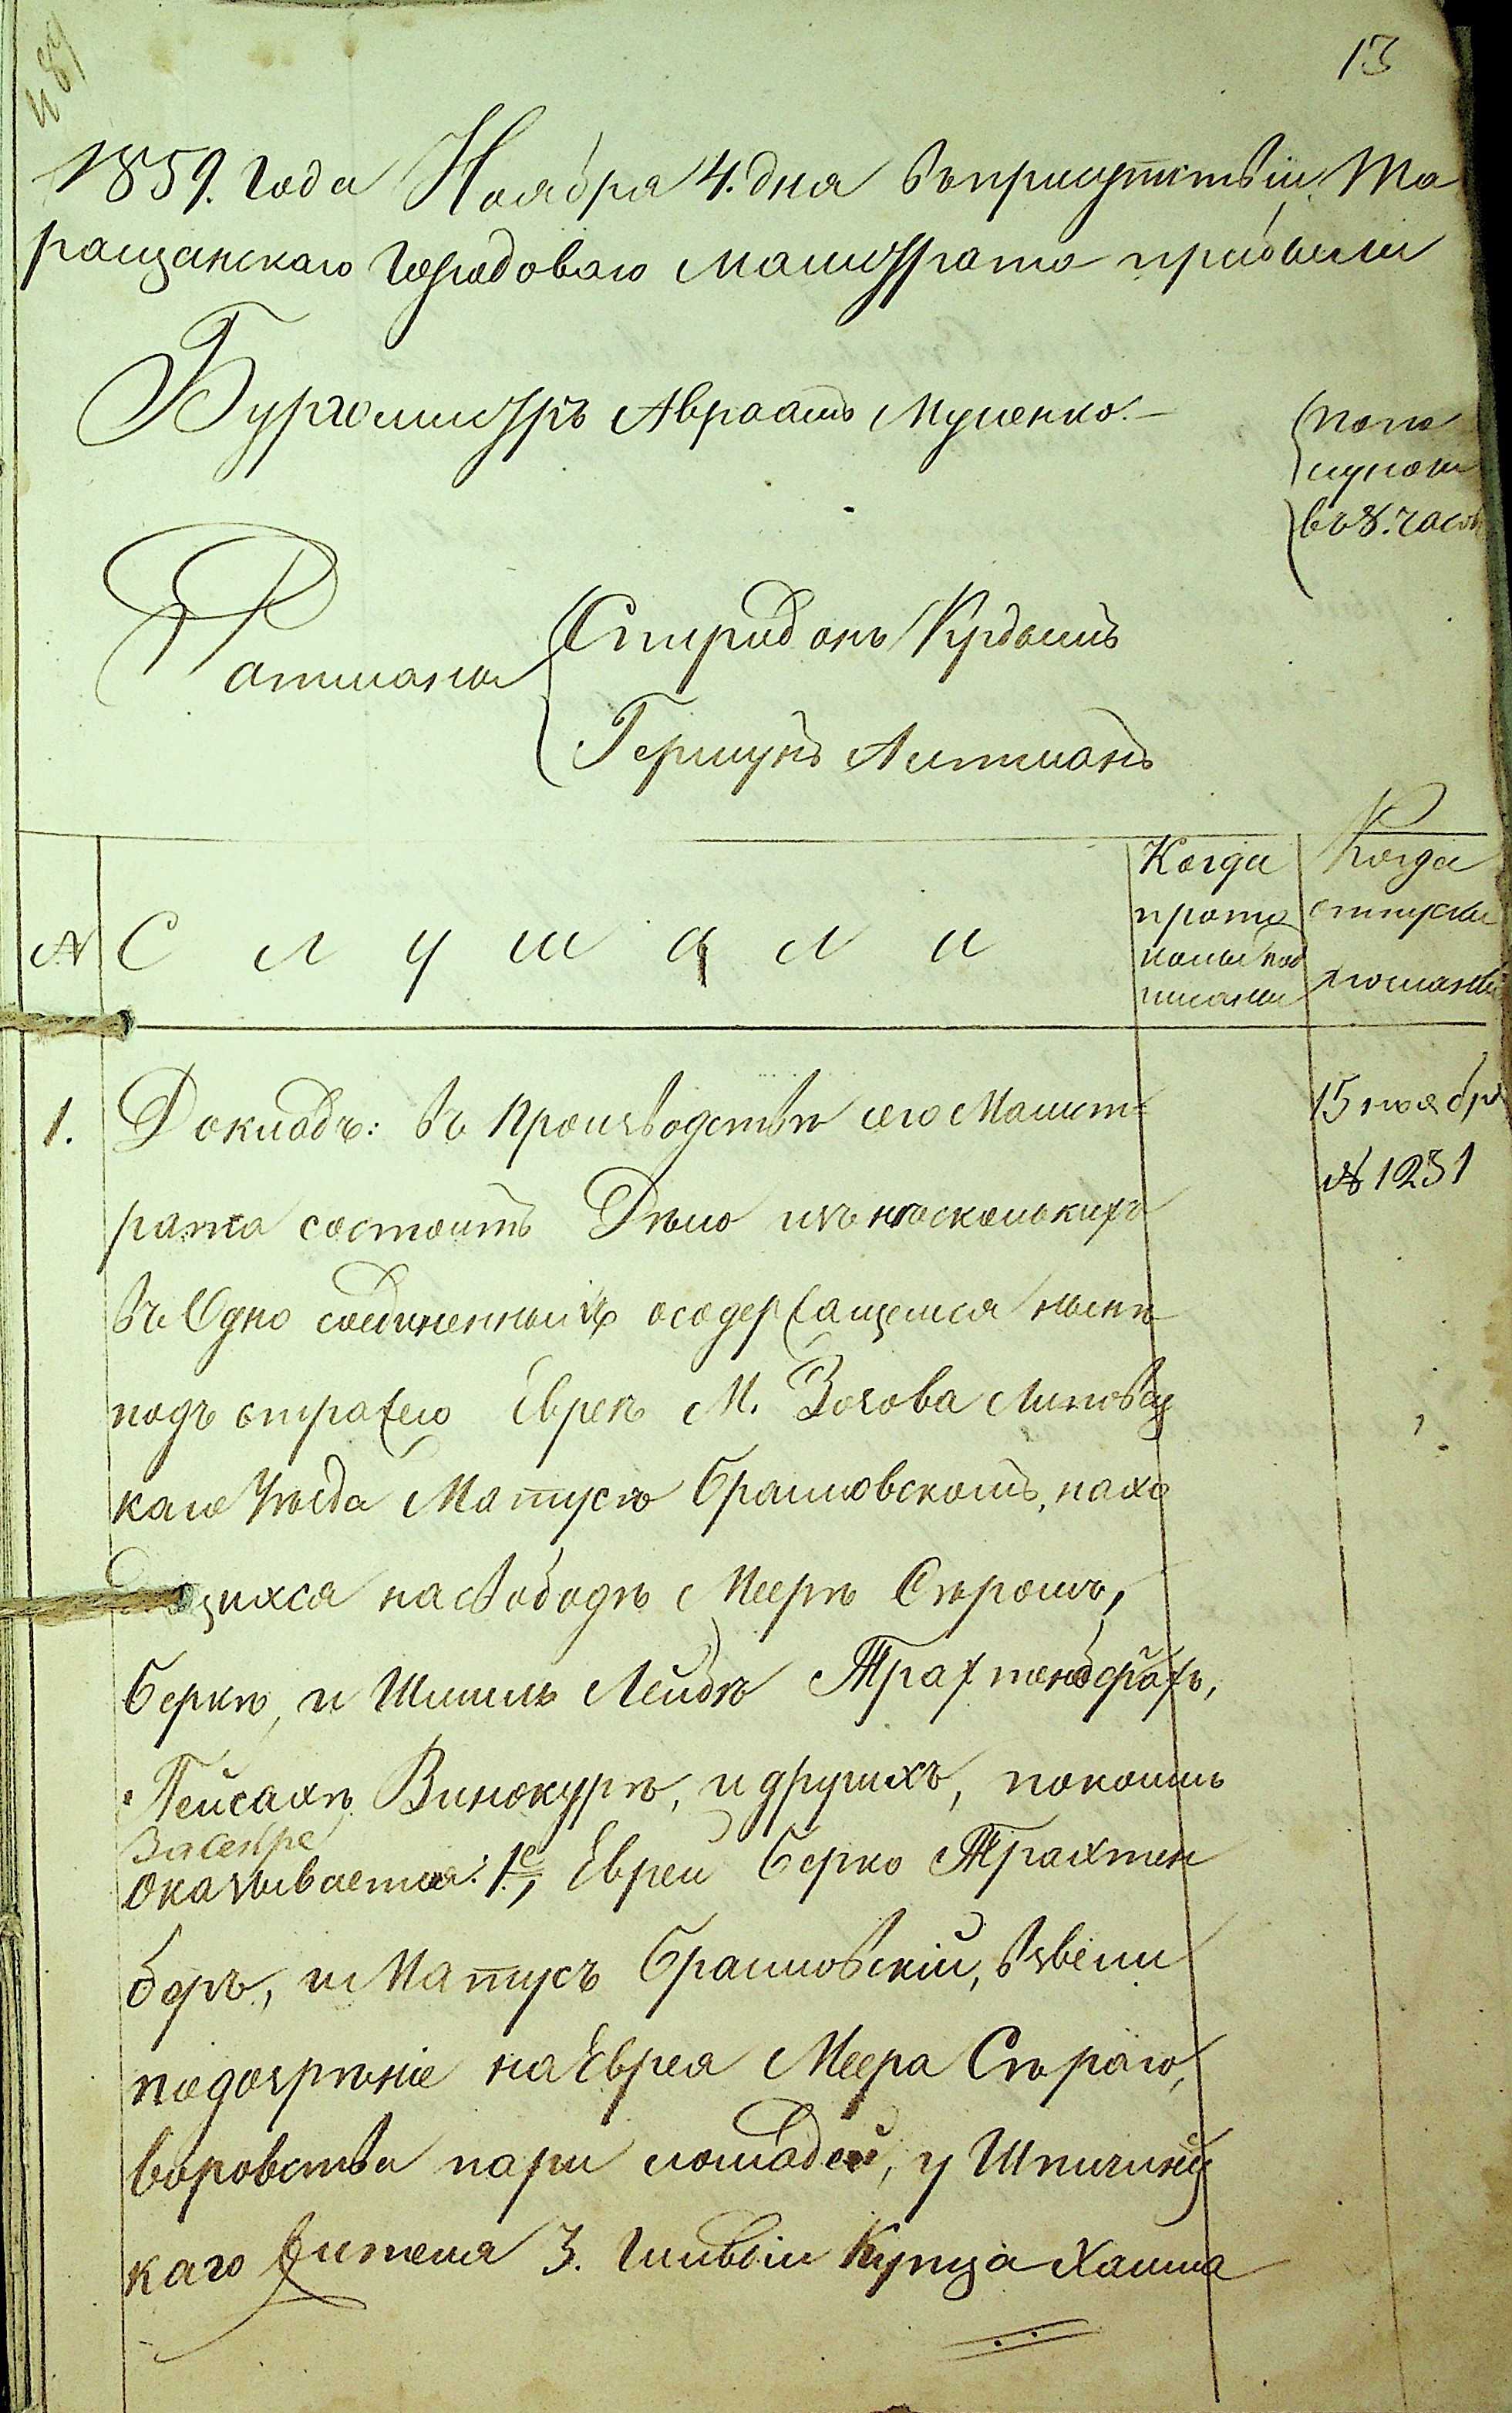 13
489
1859. года Ноября 4. дня въ присутствіи Та
ращанскаго Городоваго Магистрата прибыли
Бургомистръ Авраамъ Мусенко.—
попо
луноч
въ 8. часов
Ратманы
Спиридонъ Крдышъ
Гершунъ Альтманъ
№
Слушали
Когда
прото
колы под
писаны
Когда
отпуски
посланы
1.
Докладъ: въ производствѣ сего Магист=
рата состоитъ Дѣло изъ нѣсколькихъ
въ Одно соединенныхъ о содержащемся нынѣ
подъ стражею Евреѣ М. Зозова Липовец
каго Уѣзда Матусѣ Браиловскомъ, нахо
дящихся на свободѣ Меерѣ Сѣромъ,
Беркѣ, и Шмиль Лейбѣ Трахтенберахъ,
Пейсахѣ Винокурѣ, и другихъ, по коимъ
оказывается: 1е, Евреи Берко Трахтен
беръ, и Матусъ Браиловскій, взвели
подозрѣніе на Еврея Меера Сѣраго,
воровства пары лошадей, у Шпичинец
каго жителя 3. Гильдіи Купца Хаима
15 ноября
№ 1231